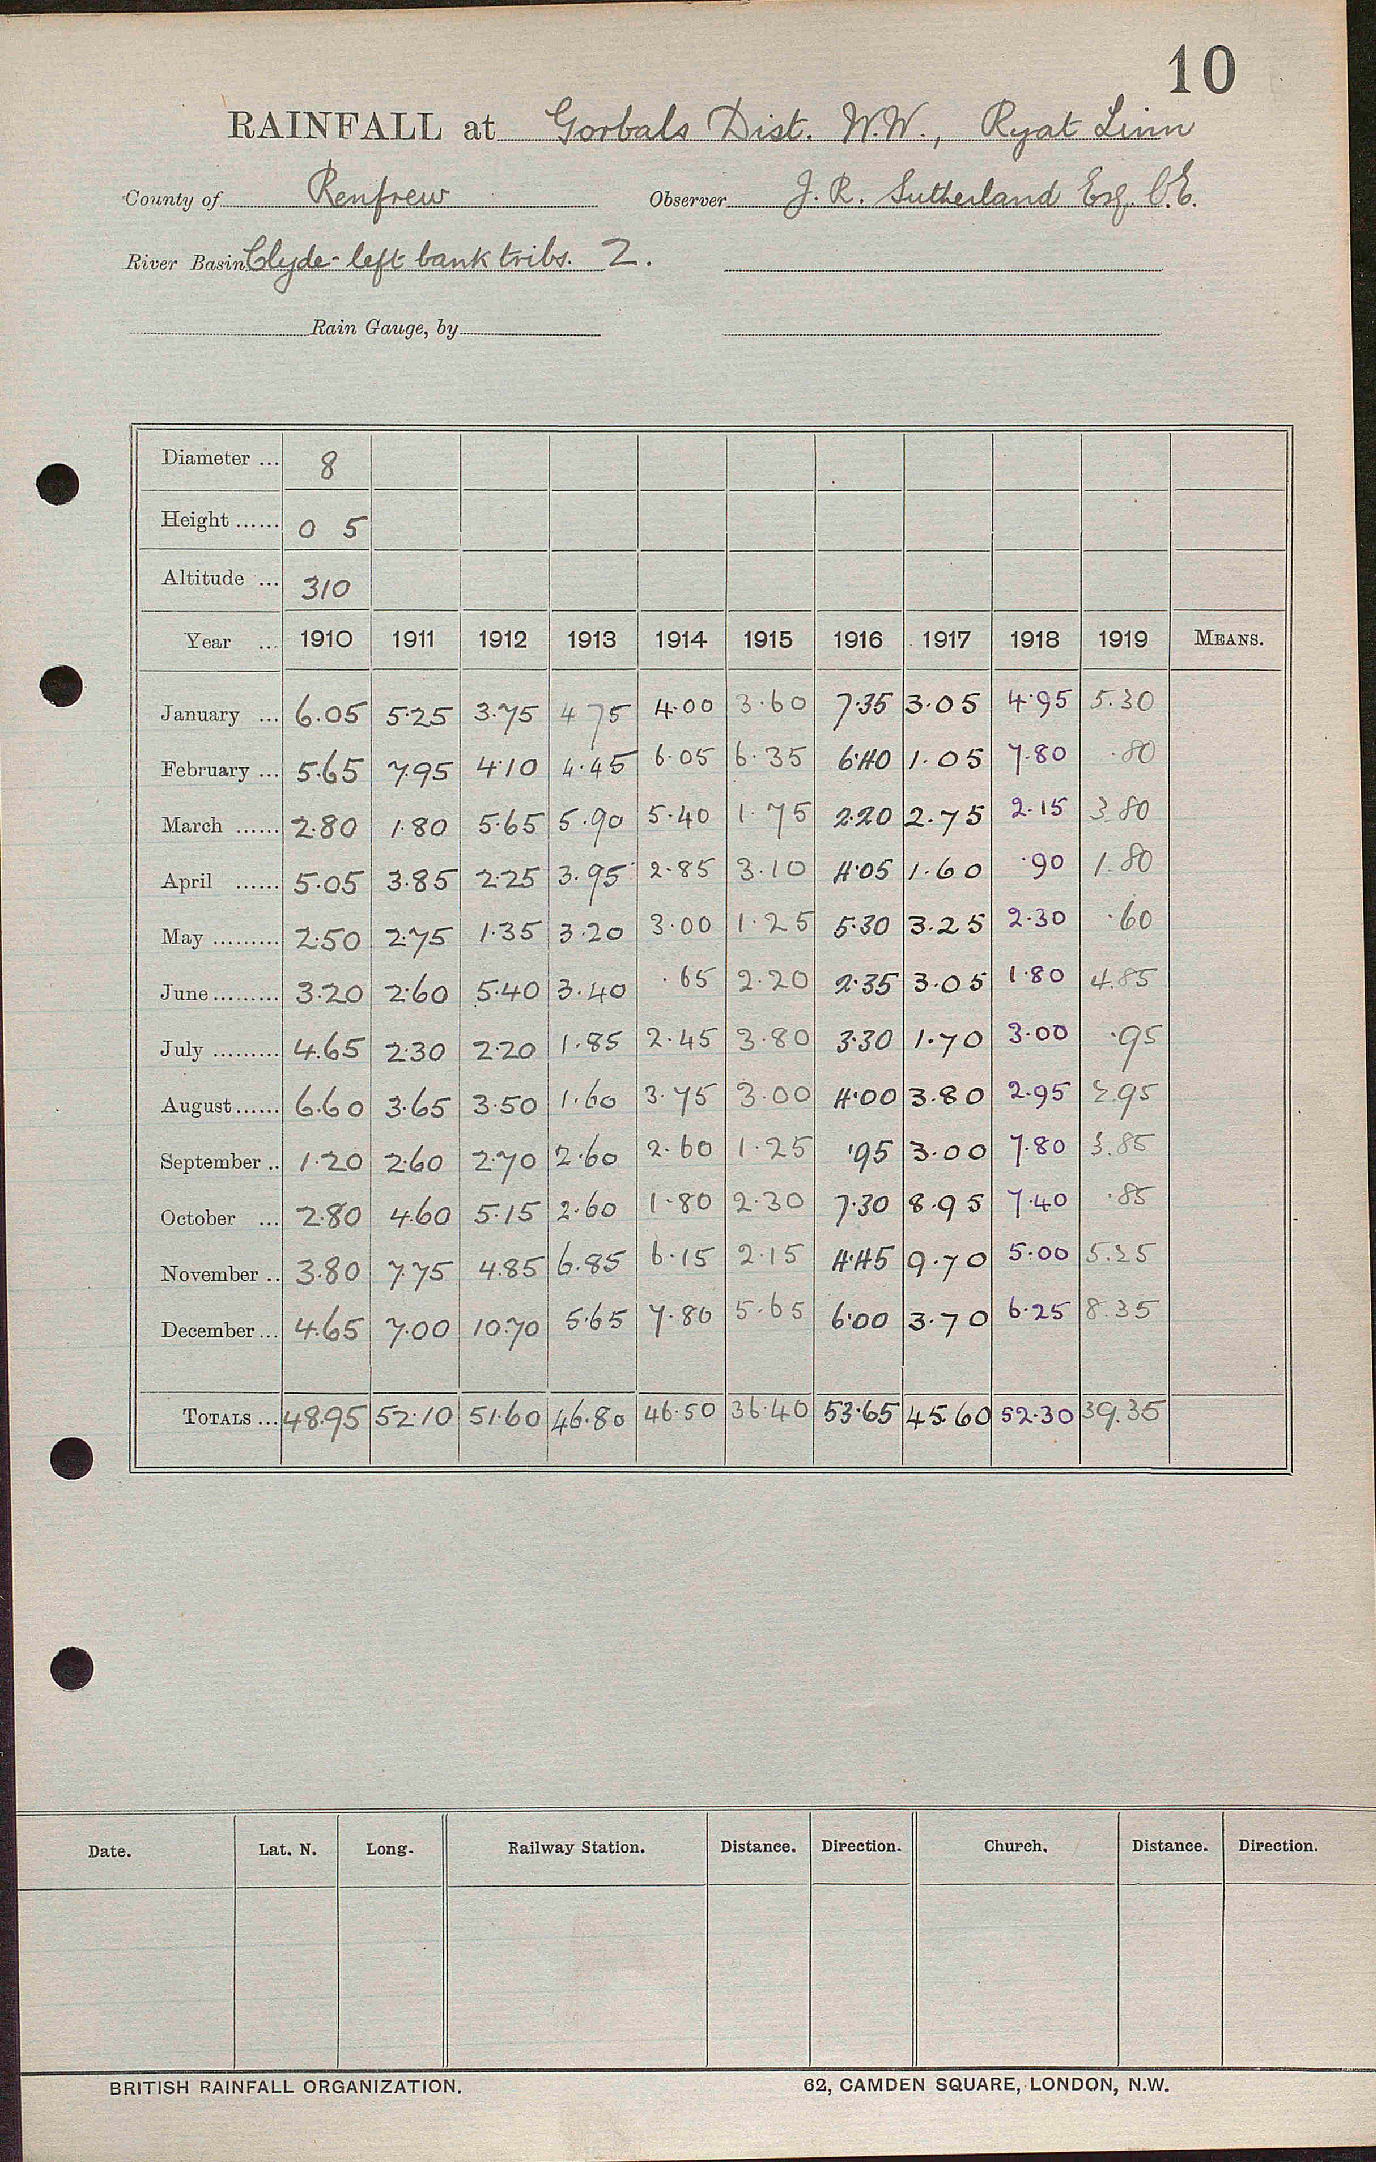 10
RAINFALL at Gorbals Dist. W.W., Ryat Linn
County of Renfrew Observer J. R. Sutherland Esq. C.E.
River Basin Clyde - left bank tribs. 2.
Rain Gauge, by
Diameter ... 8
Height ...... 0 5
Altitude ... 310
Year ... 1910 1911 1912 1913 1914 1915 1916 1917 1918 1919 MEANS.
January ... 6.05 5.25 3.75 4 75 4.00 3.60 7.35 3.05 4.95 5.30
February ... 5.65 7.95 4.10 4.45 6.05 6.35 6.40 1.05 7.80 .80
March ...... 2.80 1.80 5.65 5.90 5.40 1.75 2.20 2.75 2.15 3.80
April ...... 5.05 3.85 2.25 3.95 2.85 3.10 4.05 1.60 .90 1.80
May ......... 2.50 2.75 1.35 3.20 3.00 1.25 5.30 3.25 2.30 .60
June ......... 3.20 2.60 5.40 3.40 .65 2.20 2.35 3.05 1.80 4.85
July ......... 4.65 2.30 2.20 1.85 2.45 3.80 3.30 1.70 3.00 .95
August ...... 6.60 3.65 3.50 1.60 3.75 3.00 4.00 3.80 2.95 2.95
September .. 1.20 2.60 2.70 2.60 2.60 1.25 .95 3.00 7.80 3.85
October ... 2.80 4.60 5.15 2.60 1.80 2.30 7.30 8.95 7.40 .85
November .. 3.80 7.75 4.85 6.85 6.15 2.15 4.45 9.70 5.00 5.25
December ... 4.65 7.00 10.70 5.65 7.80 5.65 6.00 3.70 6.25 8.35
TOTALS ... 48.95 52.10 51.60 46.80 46.50 36.40 53.65 45.60 52.30 39.35
Date. Lat. N. Long. Railway Station. Distance. Direction. Church. Distance. Direction.
BRITISH RAINFALL ORGANIZATION. 62, CAMDEN SQUARE, LONDON, N.W.